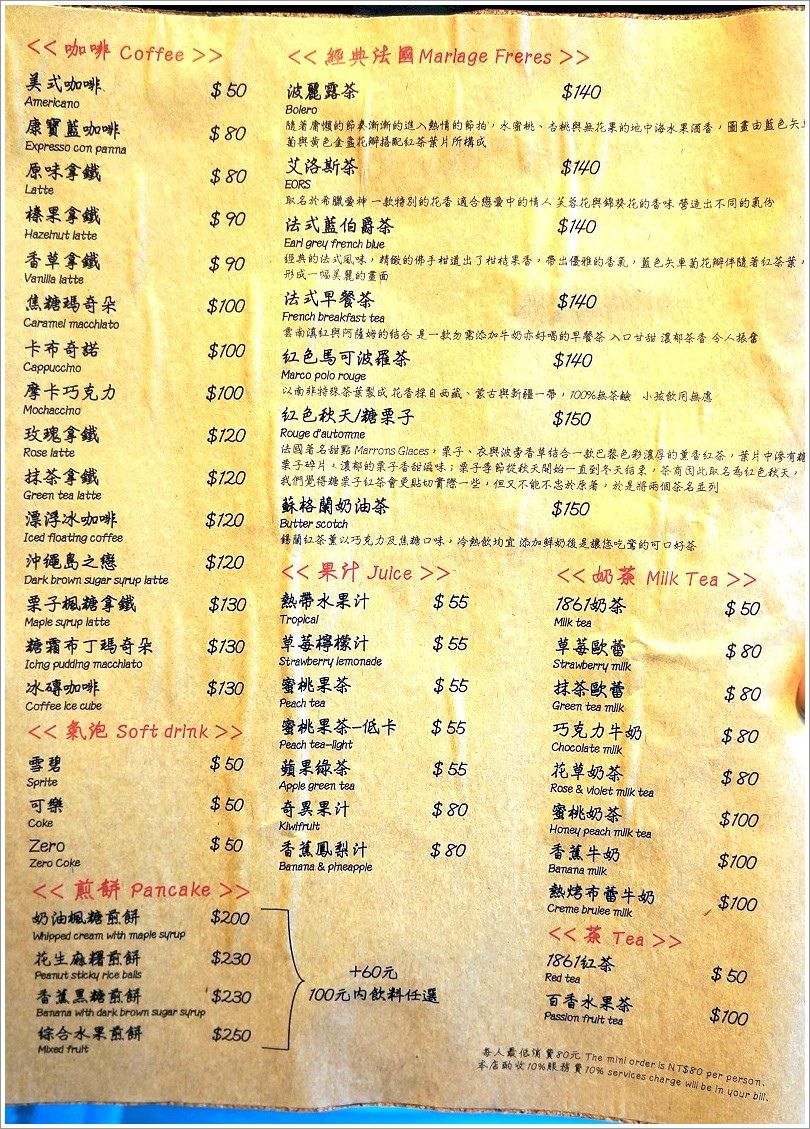 << 咖啡 Coffee >>
美式咖啡 $50
Americano
康寶藍咖啡 $80
Expresso con panna
原味拿鐵 $80
Latte
榛果拿鐵 $90
Hazelnut latte
香草拿鐵 $90
Vanilla latte
焦糖瑪奇朵 $100
Caramel macchiato
卡布奇諾 $100
Cappuccino
摩卡巧克力 $100
Mochaccino
玫瑰拿鐵 $120
Rose latte
抹茶拿鐵 $120
Green tea latte
漂浮冰咖啡 $120
Iced floating coffee
沖繩島之戀 $120
Dark brown sugar syrup latte
栗子楓糖拿鐵 $130
Maple syrup latte
糖霜布丁瑪奇朵 $130
Icing pudding macchiato
冰磚咖啡 $130
Coffee ice cube
<< 氣泡 Soft drink >>
雪碧 $50
Sprite
可樂 $50
Coke
Zero $50
Zero Coke
<< 煎餅 Pancake >>
奶油楓糖煎餅 $200
Whipped cream with maple syrup
花生麻糬煎餅 $230
Peanut sticky rice balls
香蕉黑糖煎餅 $230
Banana with dark brown sugar syrup
綜合水果煎餅 $250
Mixed fruit
+60元
100元內飲料任選
<< 經典法國Mariage Freres >>
波麗露茶 $140
Bolero
隨著慵懶的節奏漸漸的進入熱情的節拍，水蜜桃、杏桃與無花果的地中海水果酒香，圖畫由藍色矢車
菊與黃色金盞花瓣搭配紅茶葉片所構成
艾洛斯茶 $140
EORS
取名於希臘愛神 一款特別的花香 適合戀愛中的情人 芙蓉花與錦葵花的香味 營造出不同的氣份
法式藍伯爵茶 $140
Earl grey french blue
經典的法式風味，精緻的佛手柑道出了柑桔果香，帶出優雅的香氣，藍色矢車菊花瓣伴隨著紅茶葉，
形成一幅美麗的畫面
法式早餐茶 $140
French breakfast tea
雲南滇紅與阿薩姆的結合 是一款勿需添加牛奶亦好喝的早餐茶 入口甘甜 濃郁茶香 令人振奮
紅色馬可波羅茶 $140
Marco polo rouge
以南非特殊茶葉製成 花香採自西藏、蒙古與新疆一帶，100%無茶鹼 小孩飲用無慮
紅色秋天/糖栗子 $150
Rouge d'automne
法國著名甜點 Marrons Glaces，栗子、衣與波旁香草結合一款巴黎色彩濃厚的薰香紅茶，葉片中滲有糖
栗子碎片，濃郁的栗子香甜滋味；栗子季節從秋天開始一直到冬天結束，茶商因此取名為紅色秋天，
我們覺得糖栗子紅茶會更貼切實際一些，但又不能不忠於原著，於是將兩個茶名並列
蘇格蘭奶油茶 $150
Butter scotch
錫蘭紅茶薰以巧克力及焦糖口味，冷熱飲均宜 添加鮮奶後是讓您吃驚的可口好茶
<< 果汁 Juice >>
熱帶水果汁 $55
Tropical
草莓檸檬汁 $55
Strawberry lemonade
蜜桃果茶 $55
Peach tea
蜜桃果茶-低卡 $55
Peach tea-light
蘋果綠茶 $55
Apple green tea
奇異果汁 $80
Kiwifruit
香蕉鳳梨汁 $80
Banana & pineapple
<< 奶茶 Milk Tea >>
1861奶茶 $50
Milk tea
草莓歐蕾 $80
Strawberry milk
抹茶歐蕾 $80
Green tea milk
巧克力牛奶 $80
Chocolate milk
花草奶茶 $80
Rose & violet milk tea
蜜桃奶茶 $100
Honey peach milk tea
香蕉牛奶 $100
Banana milk
熱烤布蕾牛奶 $100
Creme brulee milk
<< 茶 Tea >>
1861紅茶 $50
Red tea
百香水果茶 $100
Passion fruit tea
每人最低消費80元 The mini order is NT$80 per person.
本店酌收10%服務費10% services charge will be in your bill.